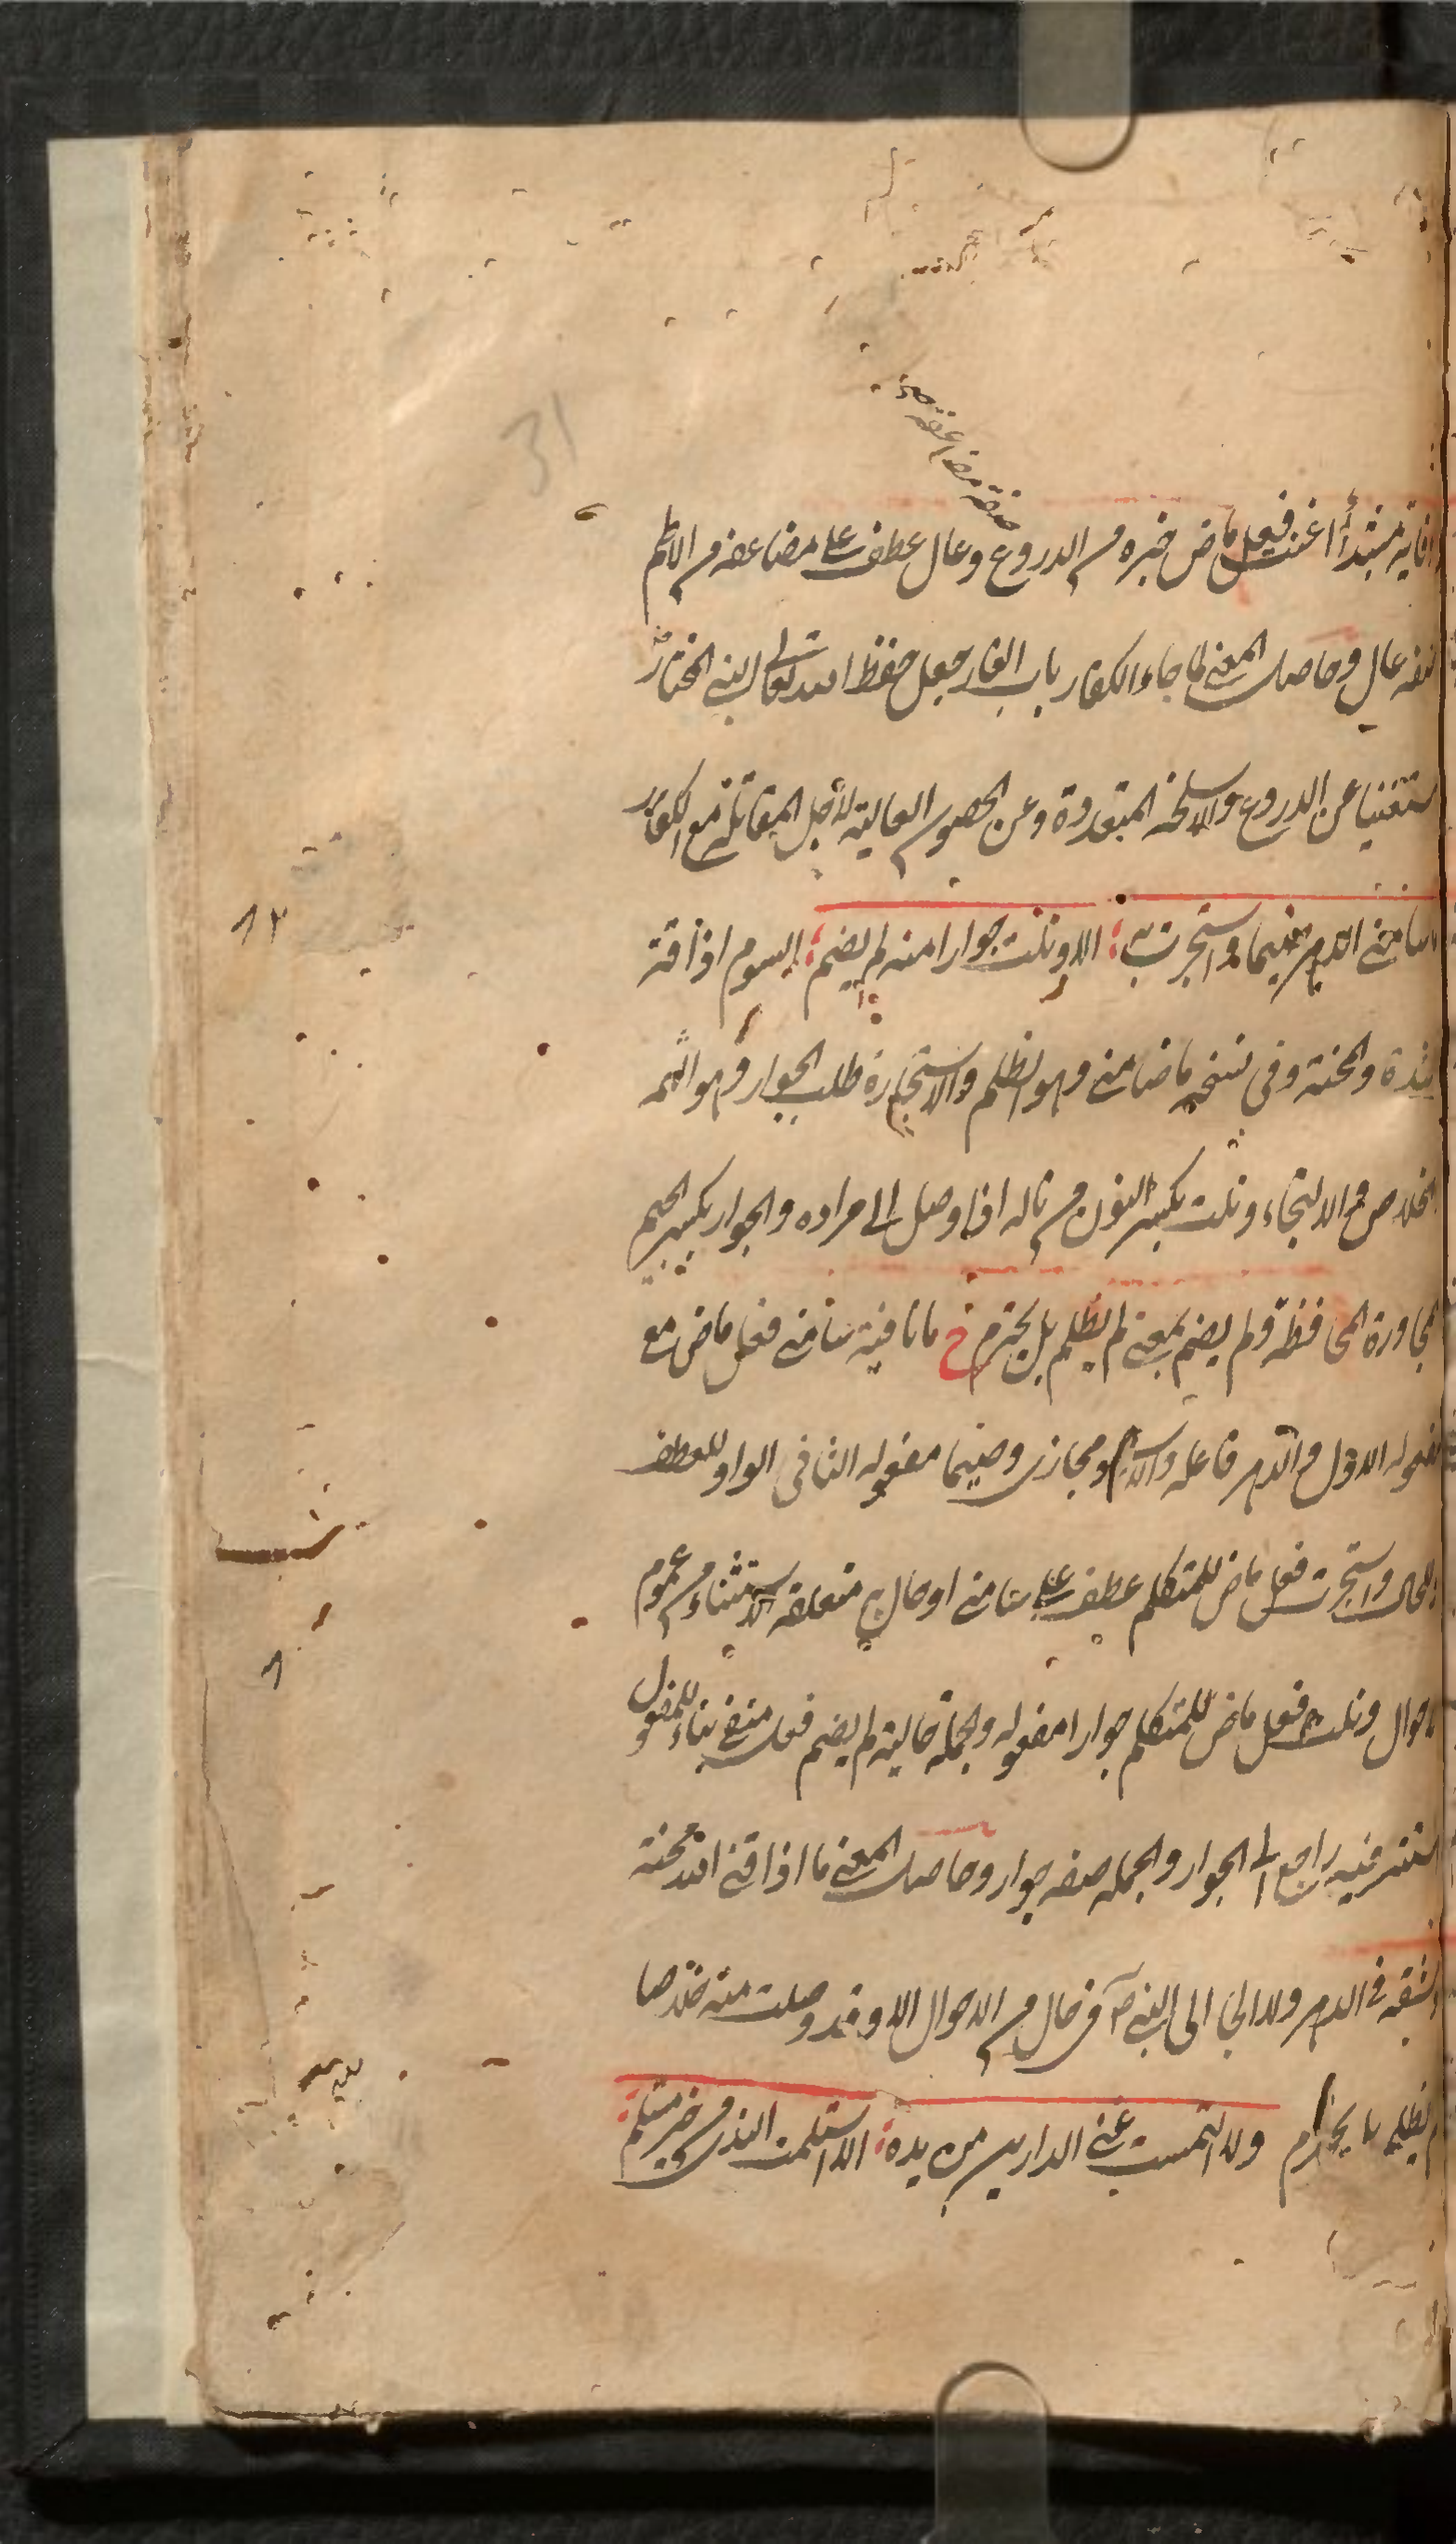 صفة مضاعفة صح
وقاية مبتدأ اغنت فعل ماض خبره من الدروع وعال عطف على مضاعفة من الاطم
صفة عال وحاصل المعنى لما جاء الكفار باب الغار جعل حفظ الله تعالى لنبيه المختار
مستغنيا عن الدروع والاسلحة المتعددة وعن الحصون العالية لاجل المقاتلة مع الكفار
ما سامني الدهر ضيما واستجرت به الا ونلت جوارا منه لم يضم السوم اذاقة
الشدة والمحنة وفي نسخة ما ضامني وهو الظلم والاستجارة طلب الجوار وهو
الخلاص والالتجاء ونلت بكسر النون من ناله اذا وصل الى مراده والجوار بكسر الجيم
المجاورة المحافظة ولم يضم بمعنى لم يظلم بل يحترم خ ما نافية سامني فعل ماض مع
مفعوله الاول والدهر فاعله والاسناد مجازي وضيما مفعوله الثاني الواو للعطف
او للحال واستجرت فعل ماض للمتكلم عطف على سامني او حال به متعلقه الاستثناء من عموم
الاحوال ونلت فعل ماض للمتكلم جوارا مفعوله والجملة حالية لم يضم فعل منفي بناء للمفعول
مستتر فيه راجع الى الجوار والجملة صفة جوار وحاصل المعنى ما اذاقني الله محنة
ومشقة في الدهر ولا الجأ الى النبي ص في حال من الاحوال الا وقد وصلت منه خلاصا
لم يظلم بل يحترم ولا التمست غنى الدارين من يده الا استلمت الندى من خير مستلم
31
١٢